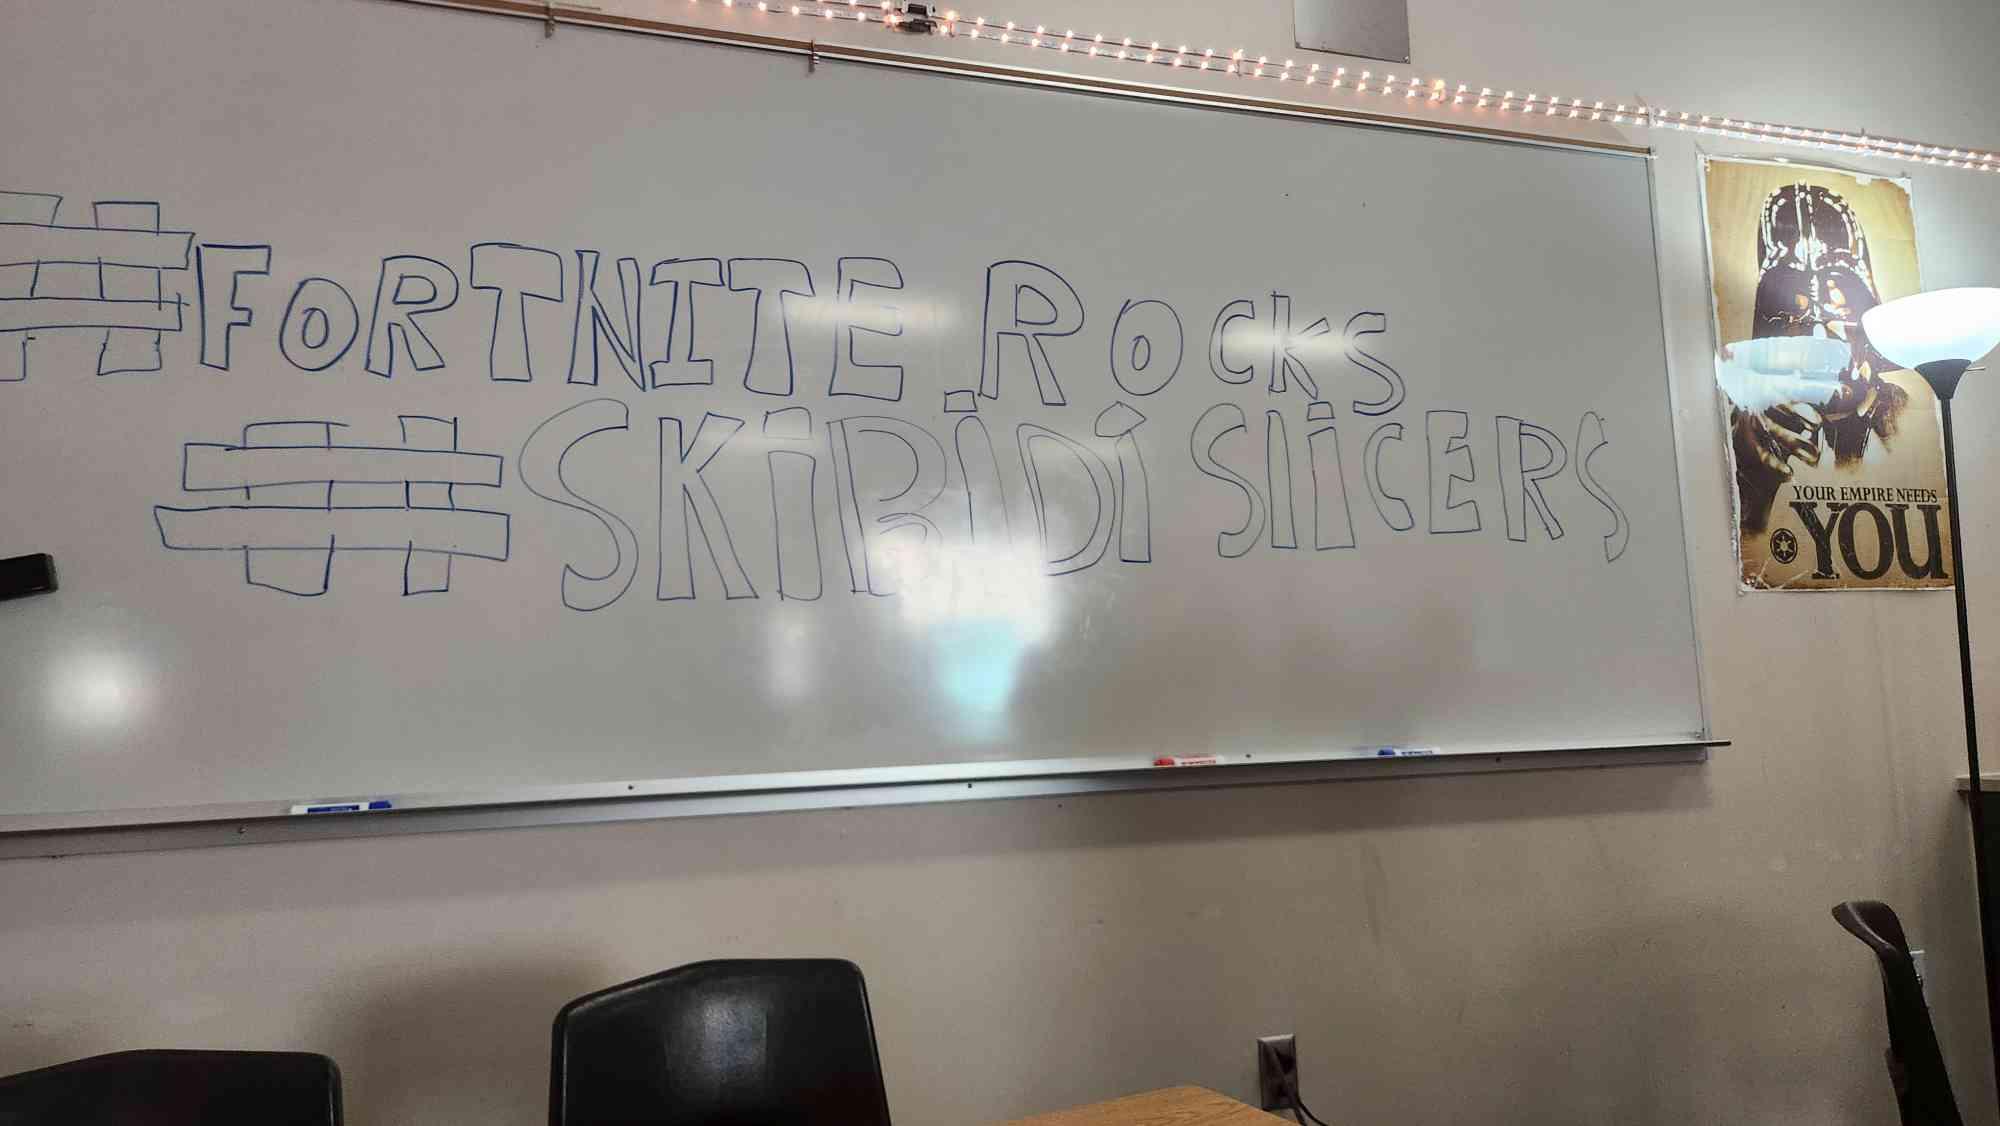 #FORTNITE ROCKS
#SKiBiDi SliCERS
YOUR EMPIRE NEEDS
YOU